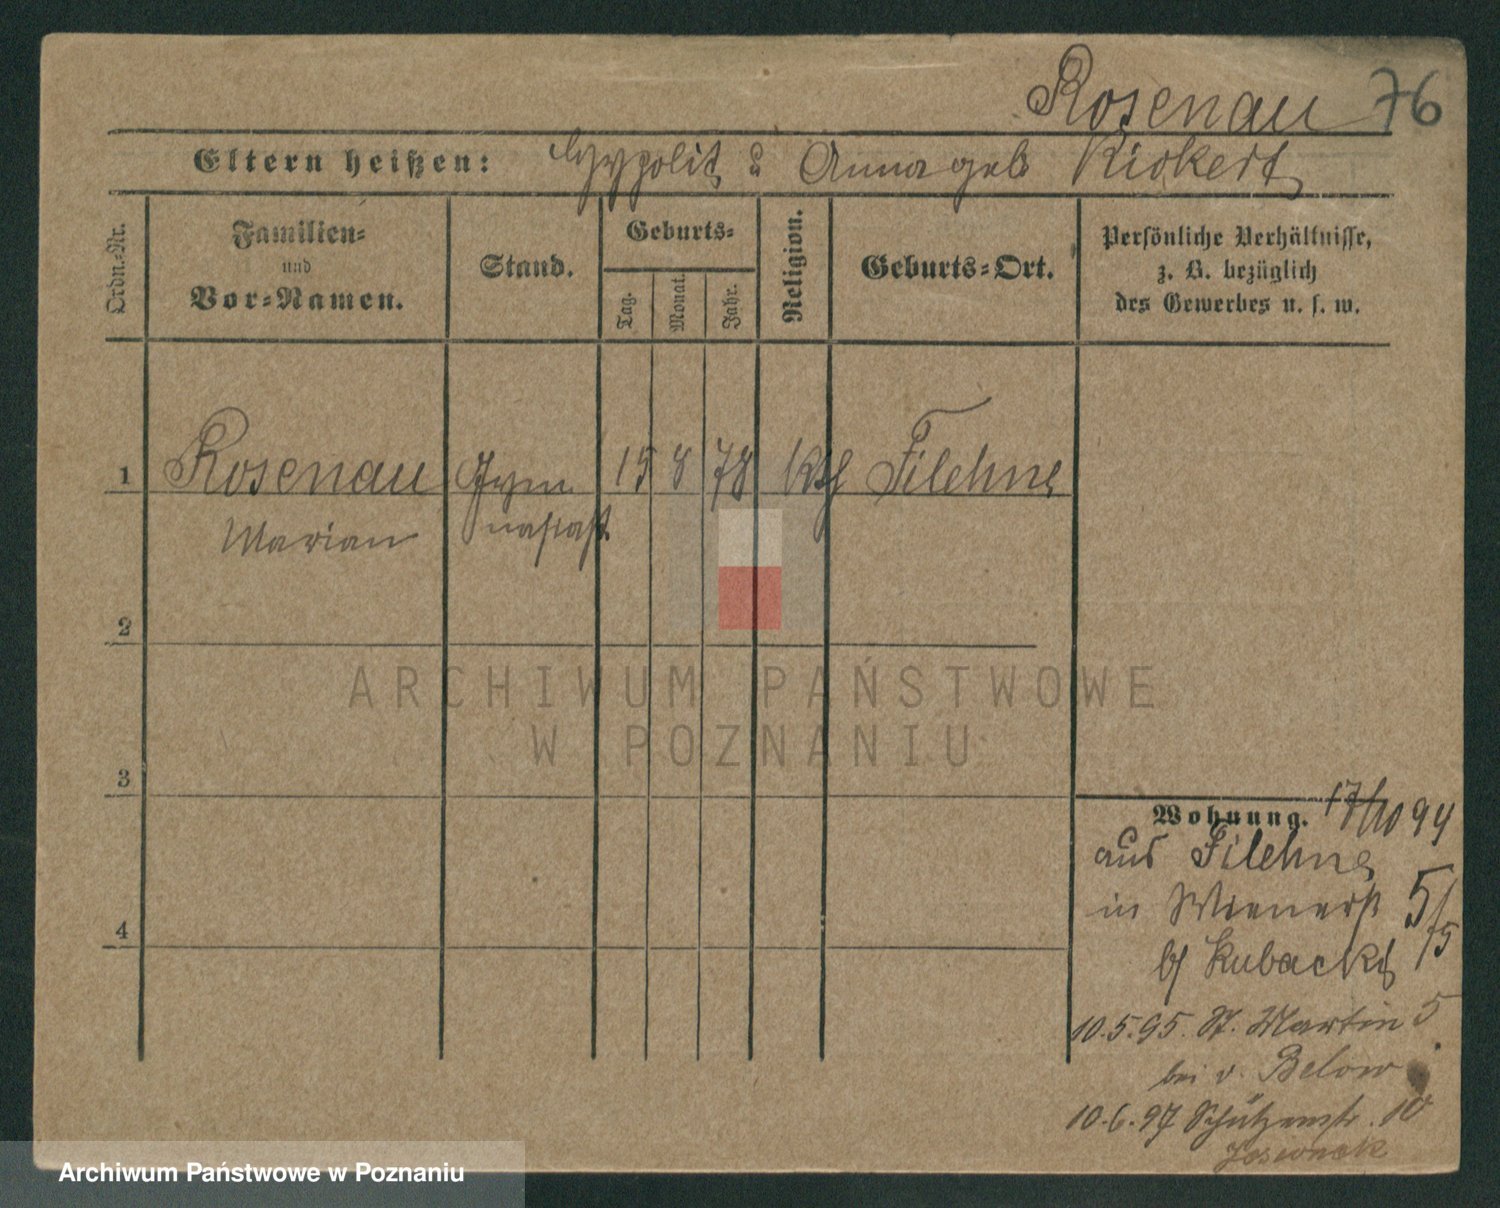 Rosenau 76
Eltern heißen: Hyppolit & Anna geb Rickert
Ordn.-Nr.
Familien-
und
Vor-Namen.
Stand.
Geburts-
Tag.
Monat.
Jahr.
Religion.
Geburts-Ort.
Persönliche Verhältnisse,
z. B. bezüglich
des Gewerbes u. s. w.
1 Rosenau Gym 15 8 78 kth Filehne
Marian nasiast
2
ARCHIWUM PAŃSTWOWE
W POZNANIU
3
Wohnung. 17/10 94
aus Filehne
in Wienerst 5/
b/ Kubacki 15
4
10.5.95. St. Martin 5
bei v. Below
10.6.97 Schützenstr. 10
Archiwum Państwowe w Poznaniu